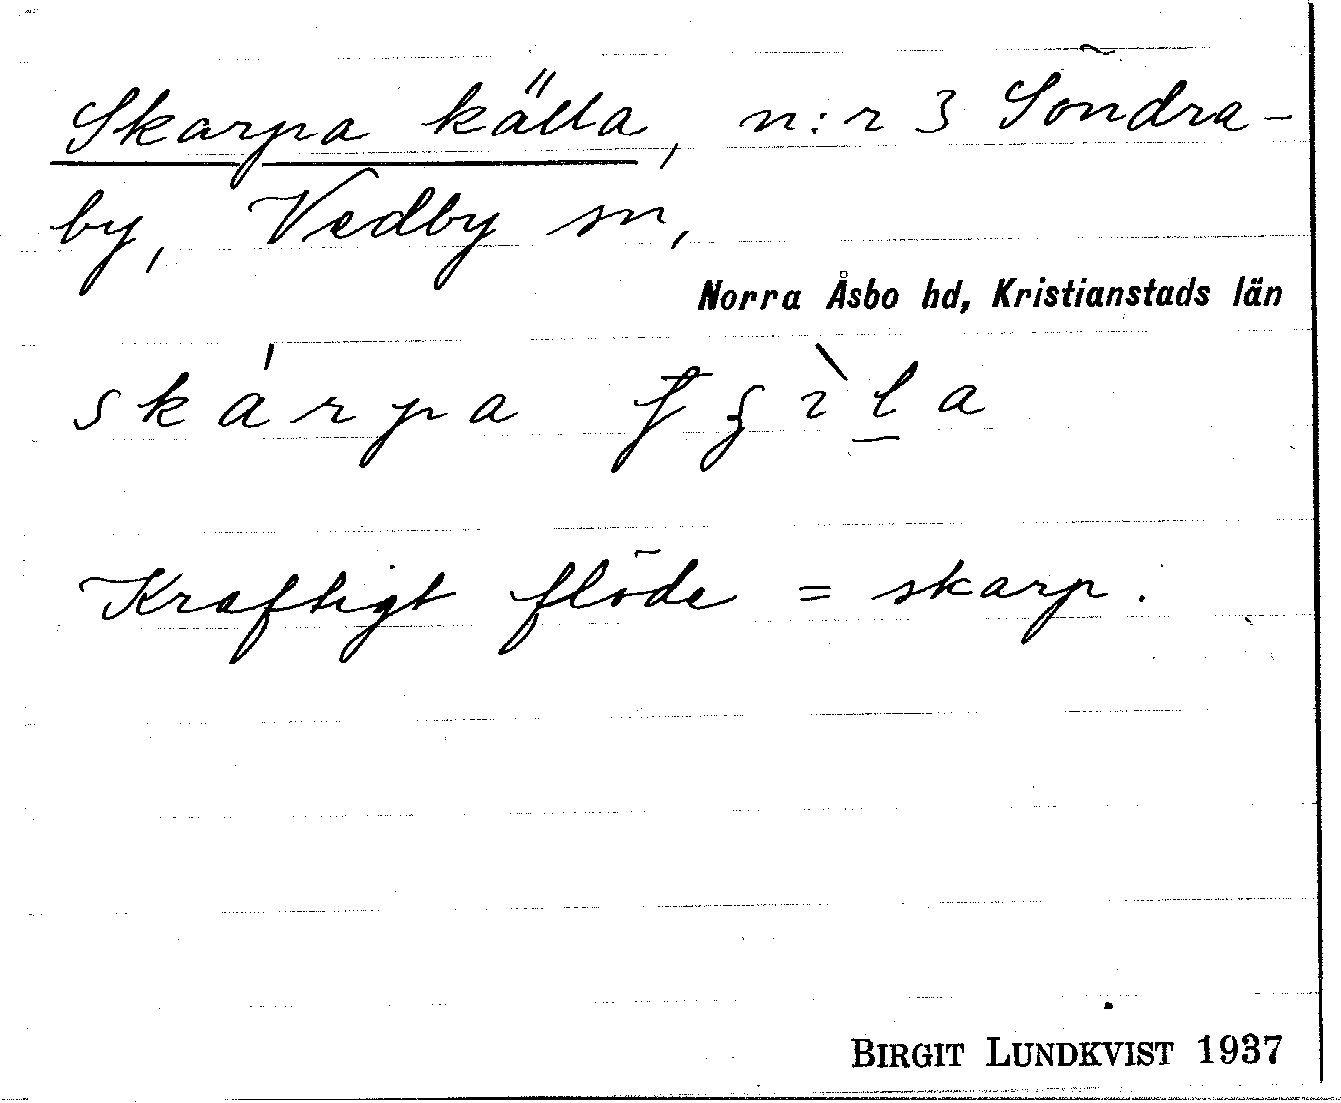 Skarpa källa, n:r 3 Söndra-
by, Vedby sn,
Norra Åsbo hd, Kristianstads län
skárpa
Kraftigt flöde = skarp.
BIRGIT LUNDKVIST 1937